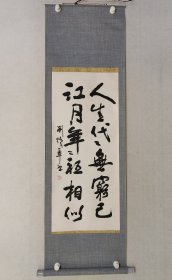 人生代々無窮已
江月年々祗相似